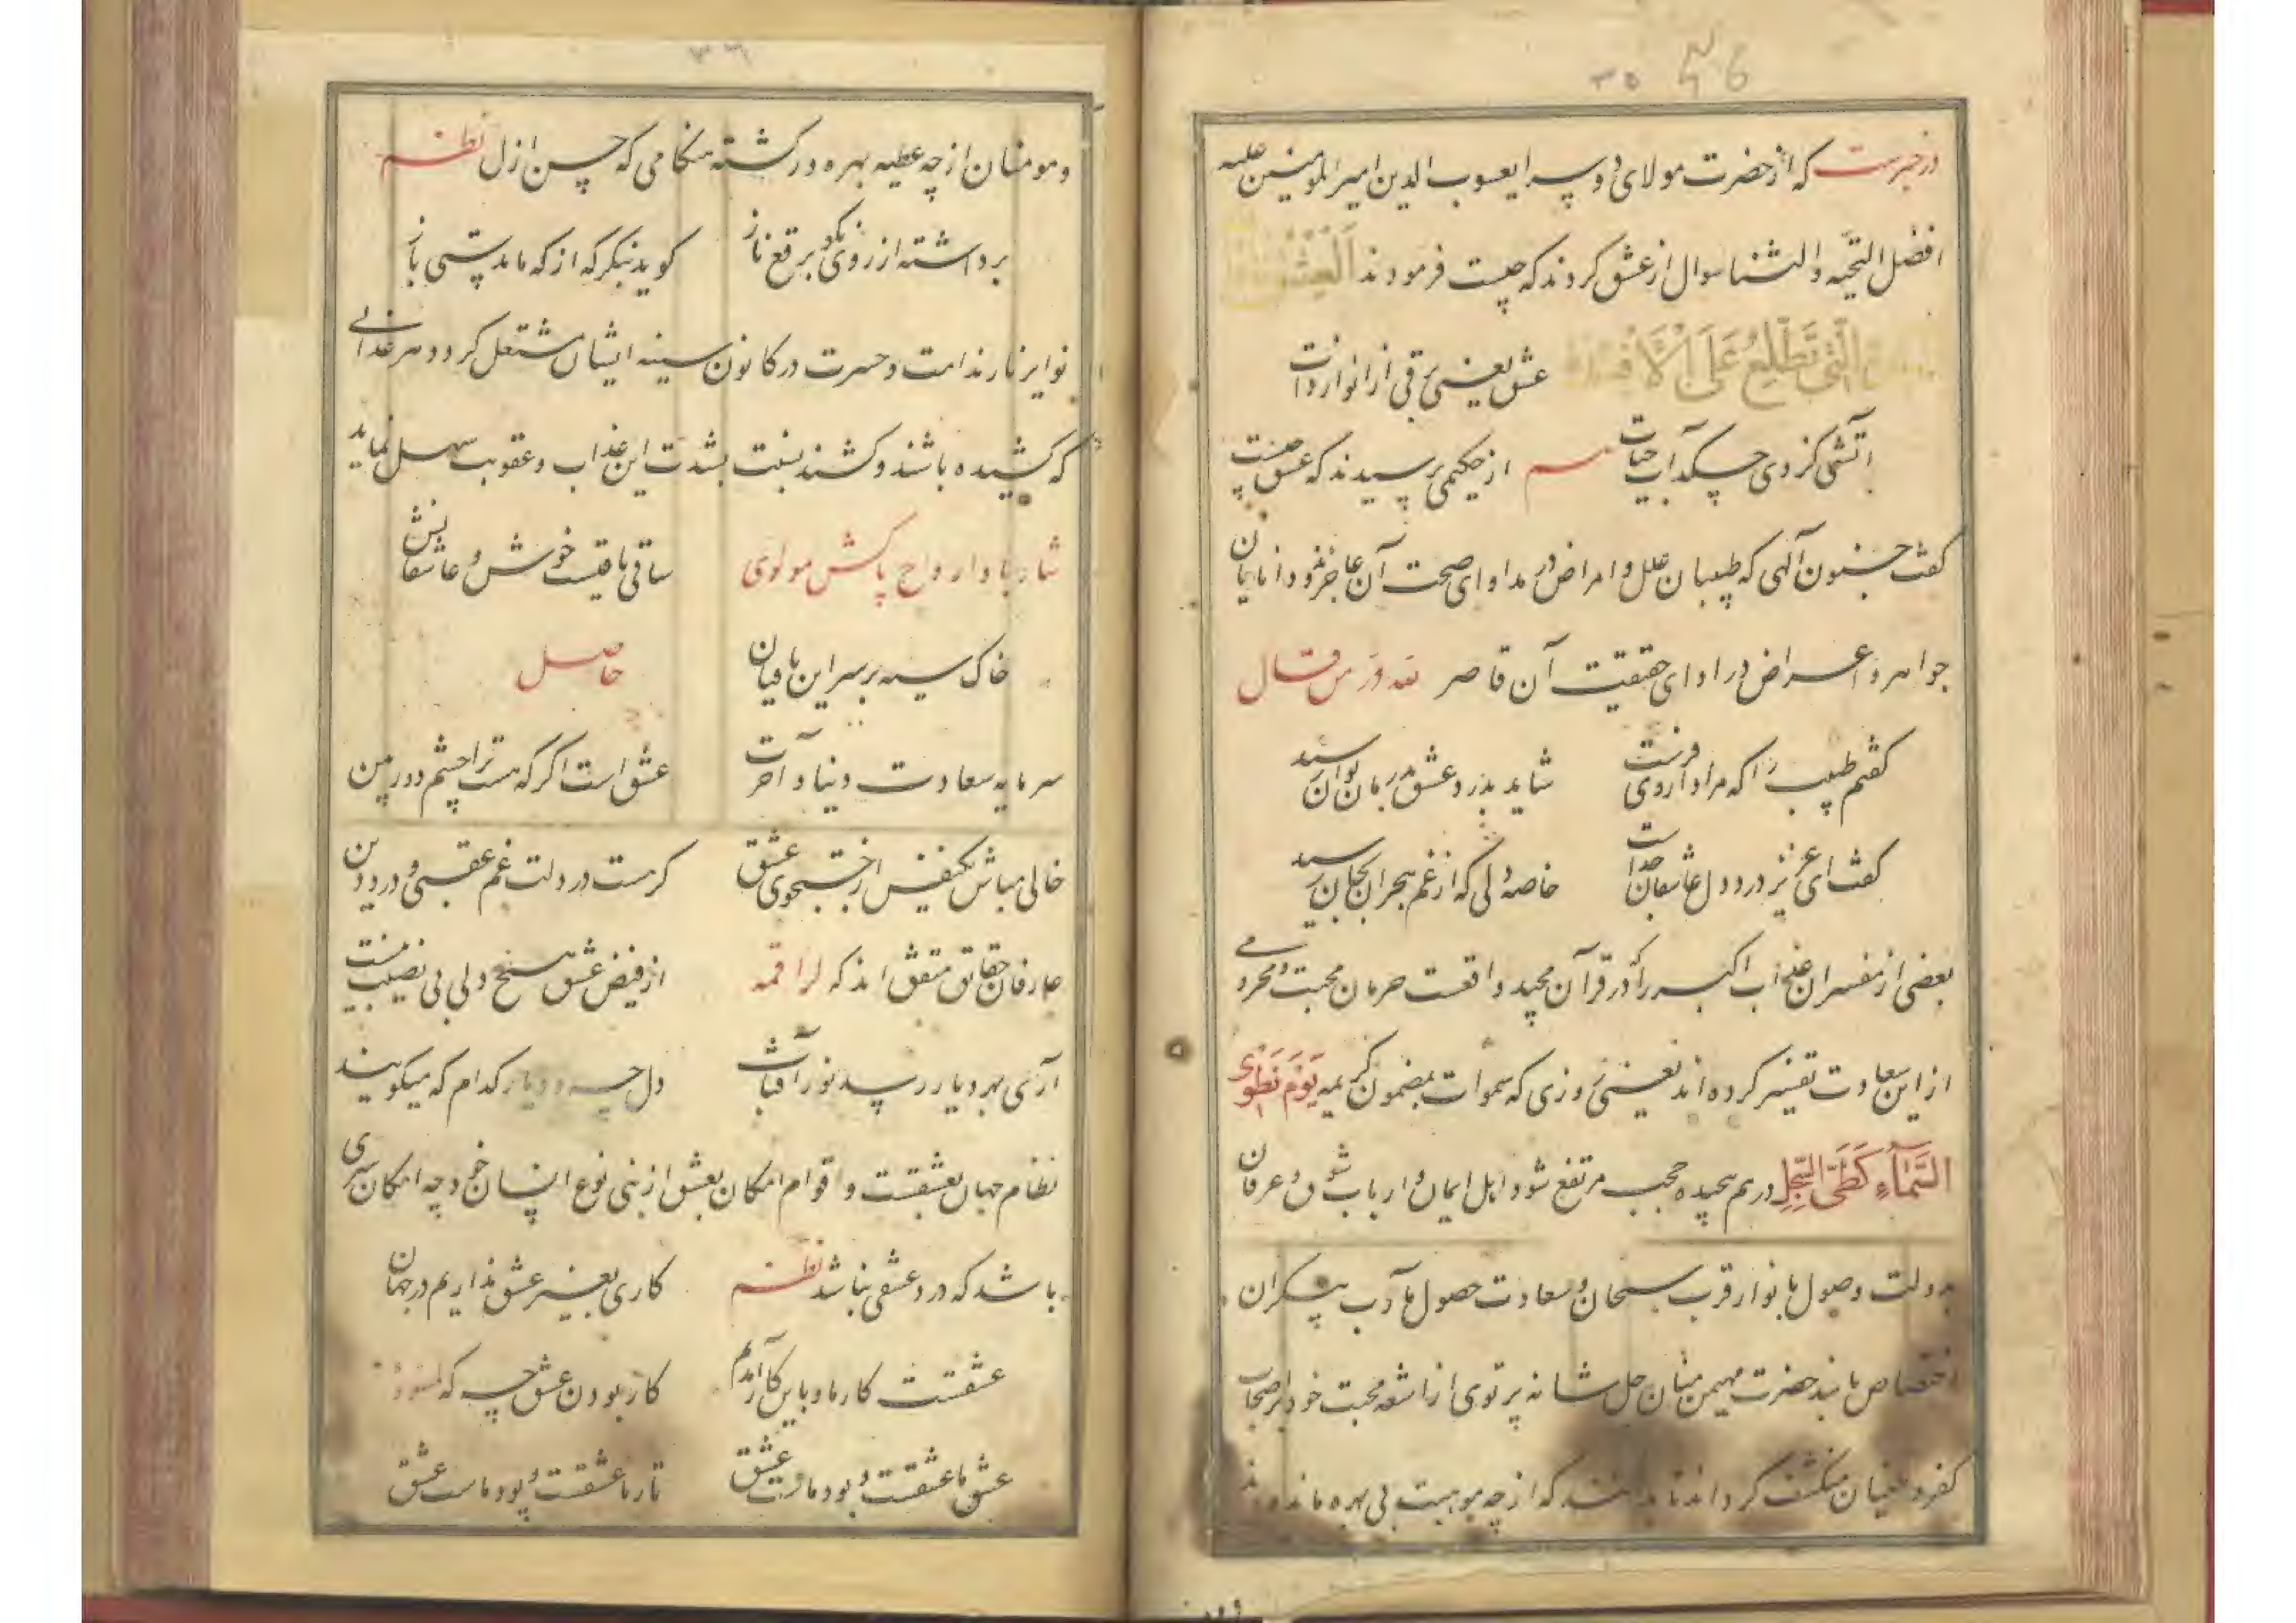 ۳۵
در خبرست که از حضرت مولای دو سرا یعسوب الدین امیر المومنین علیه
افضل التحیه والثنا سوال از عشق کردند که چیست فرمودند اَلْعِشْقُ
الَّتی تَطَّلِعُ عَلَی الْاَفْئِدَة عشق یعنی برقی از انوار ذات
آتشی کز وی چکد آب حیات از حکیمی پرسیدند که عشق چیست
کفت جنون آلهی که طبیبان علل و امراض در مداوای صحت آن عاجزند و دانایان
جواهر و اعراض در ادای حقیقت آن قاصر لله در من قال
کفتم طبیب را که مرا داروی فرست شاید بدرد عشق درمان توان رسید
کفت ای عزیز درد دل عاشقان جداست خاصه دلی که از غم هجران بجان رسید
بعضی از مفسران عذاب اکبر را که در قرآن مجید واقعست حرمان محبت و محرومی
از این سعادت تفسیر کرده اند یعنی روزی که سموات بمضمون کریمه یَوْمَ نَطْوِی
السَّمَآءِ کَطَیِّ السِّجِلِّ درهم پیچیده حجب مرتفع شود و اهل ایمان و ارباب شوق و عرفان
بدولت وصول بانوار قرب سبحان و سعادت حصول مآرب بیکران
اختصاص یابند حضرت مهیمن منان جل شانه پرتوی از اشعه محبت خود بر اصحاب
کفر و طغیان منکشف کرداند تا بدانند که از چه موهبت بی بهره مانده اند
۳۶
و مومنان از چه عطیه بهره ور کشته هنکامی که حسن ازل نظم
برداشته از روی نکو برقع ناز کوید بنکر که از که ماندستی باز
نوایر نار ندامت و حسرت در کانون سینه ایشان مشتعل کردد و هر عذابی
که کشیده باشند و کشند بنسبت بشدت این عذاب و عقوبت سهل نماید
نثار باد ارواح پاکش مولوی ساقی باقیست خوش و عاشقانش
خاک سیه بر سر این باقیان حاصل
سرمایه سعادت دنیا و آخرت عشق است اکر که هست ترا چشم دوربین
خالی مباش یکنفس از جستجوی عشق کرهست در دلت غم عقبی و درد دین
عارفان حقائق متفق اند که لراقمه از فیض عشق هیچ دلی بی نصیب نیست
آری بهر دیار رسد نور آفتاب دل چه و دیار کدام که میکویند
نظام جهان بعشقست و اقوام امکان بعشق از بنی نوع انسان خود چه امکان سری
باشد که در و عشقی نباشد نظم کاری بغیر عشق نداریم در جهان
عشقست کار ما و باین کار آمدیم کار بودن عشق چه که
عشق ما عشقست و بود ما و عشق تار ما عشقست و پود ماست عشق